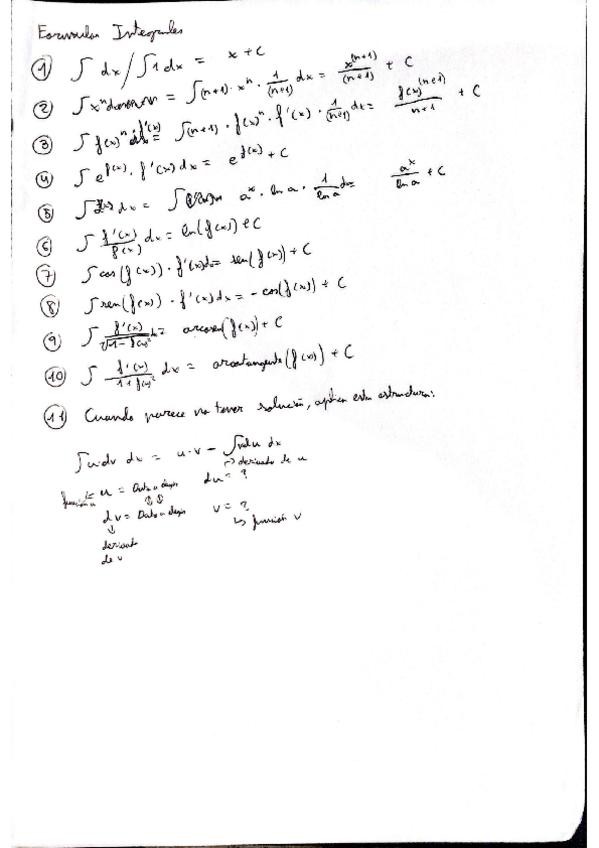 Formulas Integrales
① ∫ dx / ∫1dx = x + C
② ∫xⁿ = ∫(n+1) · xⁿ · 1/(n+1) dx = x^(n+1)/(n+1) + C
③ ∫ f(x)ⁿ · f'(x) dx = ∫(n+1) · f(x)ⁿ · f'(x) · 1/(n+1) dx = f(x)^(n+1)/n+1 + C
④ ∫ e^f(x) · f'(x) dx = e^f(x) + C
⑤ ∫ dx = ∫ aˣ · ln a · 1/ln a dx = aˣ/ln a + C
⑥ ∫ f'(x)/f(x) dx = ln(f(x)) + C
⑦ ∫ cos(f(x)) · f'(x)dx = sen(f(x)) + C
⑧ ∫ sen(f(x)) · f'(x) dx = - cos(f(x)) + C
⑨ ∫ f'(x)/√1-f(x)² dx = arcosen(f(x)) + C
⑩ ∫ f'(x)/1+f(x)² dx = arcotangente(f(x)) + C
⑪ Cuando parece no tener solución, aplica esta estructura:
∫u·dv dx = u·v - ∫vdu dx
↳ derivada de u
función ← u = Dato a elegir du = ?
dv = Dato a elegir v = ?
↓ ↳ función v
derivada
de v